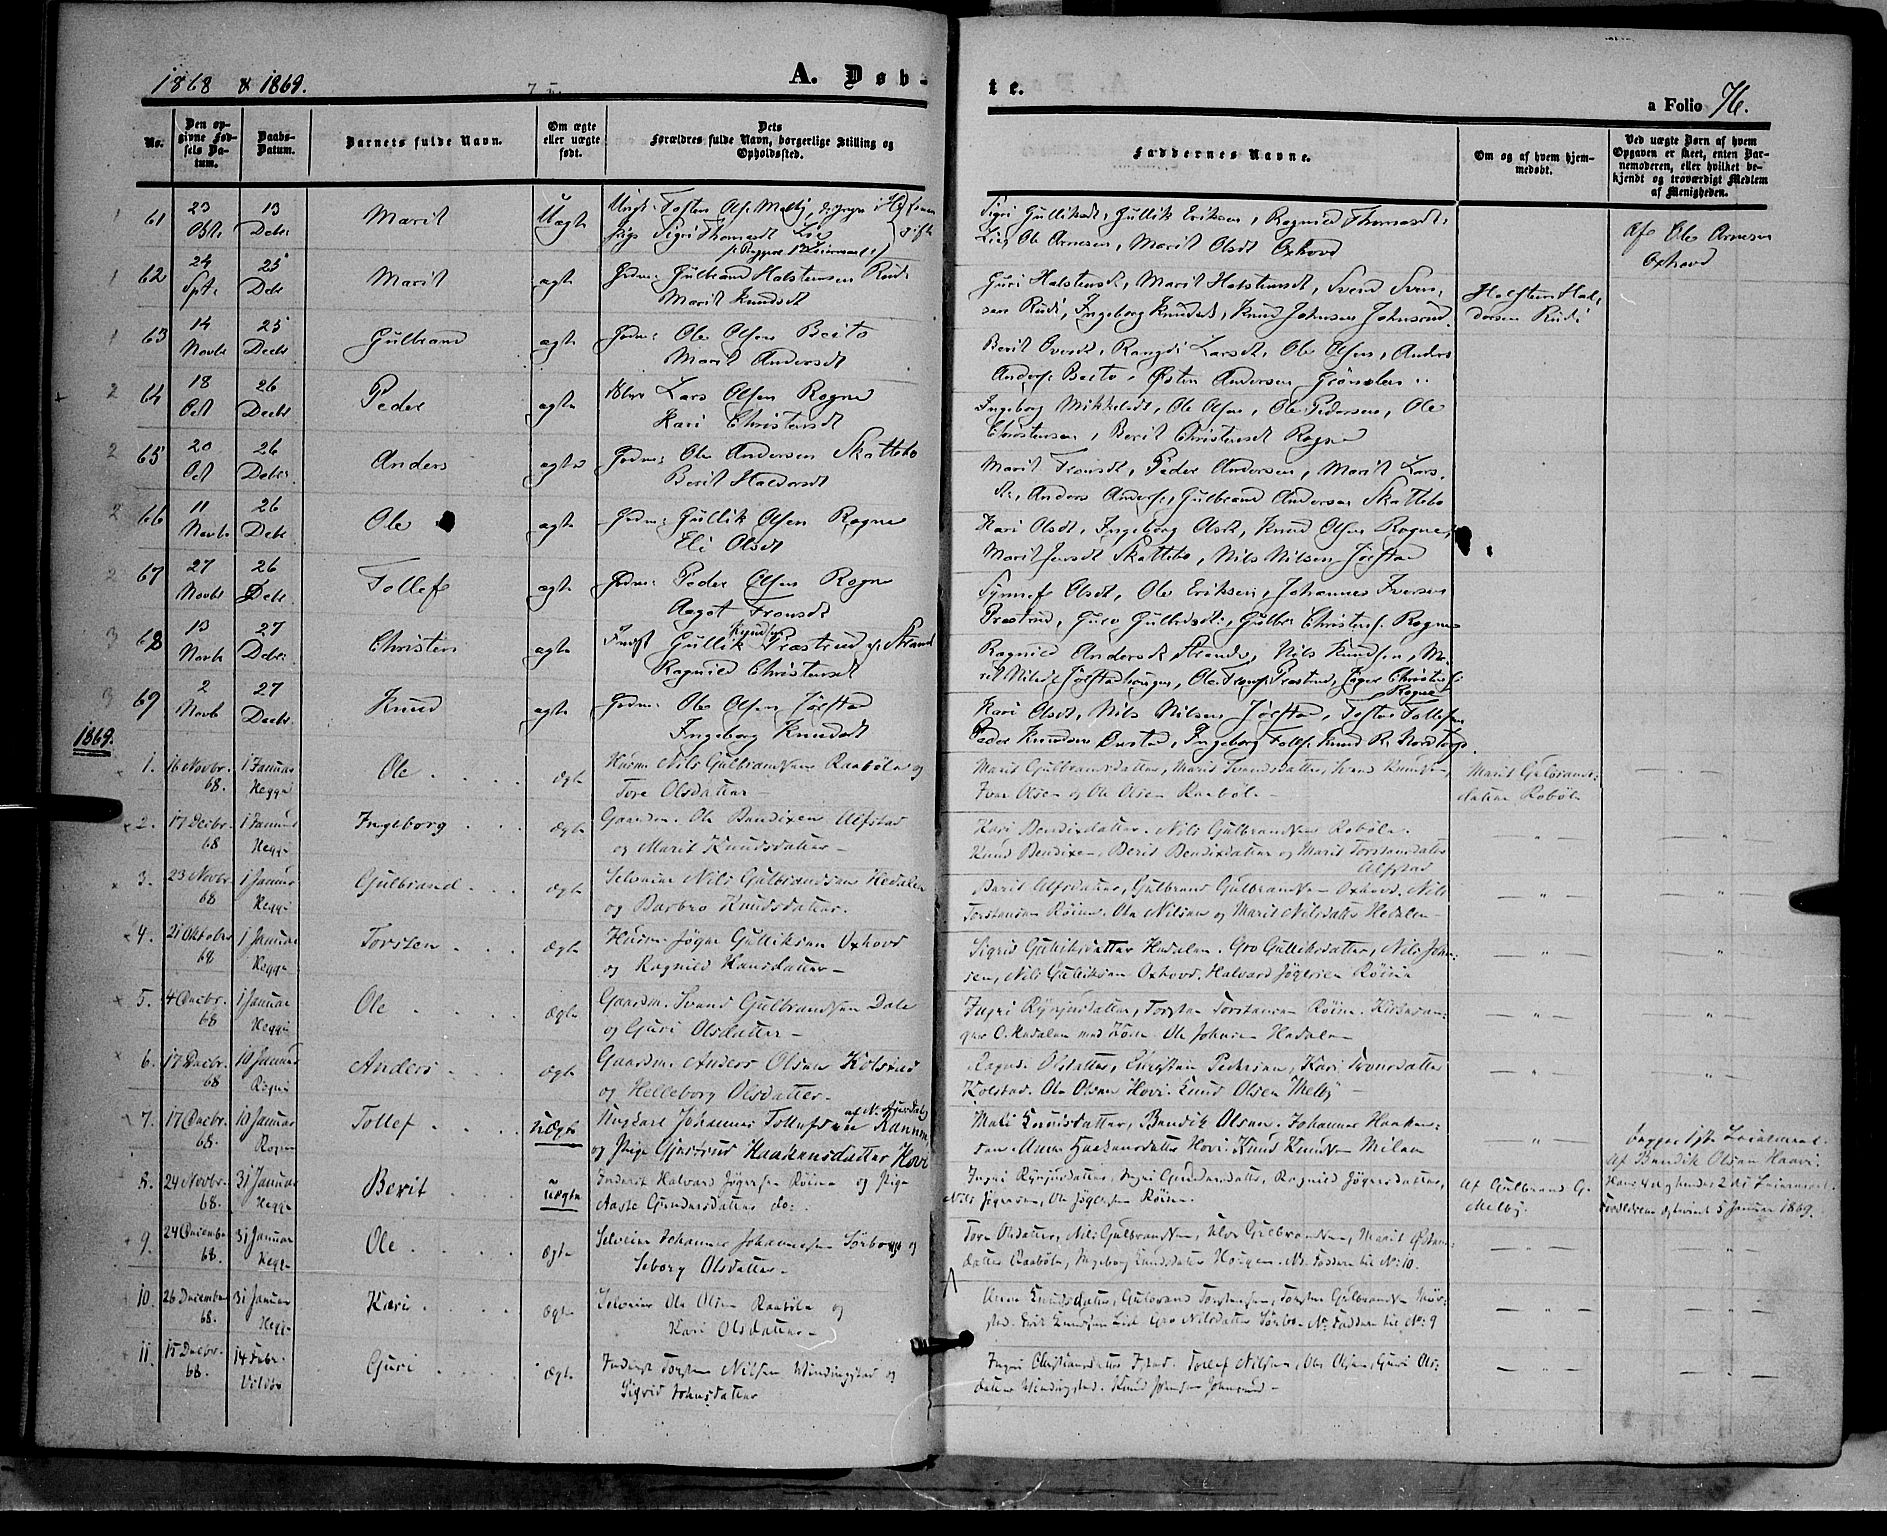 1868 & 1869.
A. Døbte.
a Folio 76.
No.
Den opgivne Fødsels Datum.
Daabs-Datum.
Barnets fulde Navn.
Om ægte eller uægte født.
Dets Forældres fulde Navn, borgerlige Stilling og Opholdssted.
Faddernes Navne.
Om og af hvem hjemmedøbt.
Ved uægte Børn af hvem Opgaven er skeet, enten Barnemoderen, eller hvilket bekjendt og troværdigt Medlem af Menigheden.
61 23 Obte 13 Debr Marit Uagte
Pige Sigri Thomasdt Lie
Sigri Gulliksdt, Gullik Eriksen, Ragnild Thomasdt,
Lie, Ole Arnesen, Marit Olsdt Oxhovd
Af Ole Arnesen
Oxhovd
62 24 Spt. 25 Debr Marit agte Gdm: Gulbrand Halstensen Rudi
Marit Knudsdt
Guri Halstensdt, Marit Halstensdt, Svend Sven-
sen Rudi, Ingeborg Knudsdt, Knud Johnsen Johnsrud
Halsten Hal-
dorsen Rudi
63 14 Novbr 25 Decbr Gulbrand agte Gdm: Ole Olsen Beito
Marit Andersdt
Berit Oversdt, Rangdi Larsdt, Ole Olsen, Anders
Anders. Beito, Østen Andersen Grønolen
64 18 Oct 26 Decbr Peder agte Lars Olsen Rogne
Kari Christensdt
Ingeborg Mikkelsdt, Ole Olsen, Ole Pedersen, Ole
Christensen, Berit Christensdt Rogne
65 20 Oct 26 Debr Anders agte Gdm: Ole Andersen Skattebo
Berit Haldorsdt
Marit Tronsdt, Peder Andersen, Marit Lars-
dt, Anders Anders., Gulbrand Andersen Skattebo
66 11 Novbr 26 Debr Ole agte Gdm: Gullik Olsen Rogne
Eli Olsdt
Kari Olsdt, Ingeborg Olsdt, Knud Olsen Rogne,
Marit Jensdt Skattebo, Nils Nilsen Jølstad
67 27 Novbr 26 Debr Tollef agte Gdm: Peder Olsen Rogne
Aagot Tronsdt
Synnef Olsdt, Ole Eriksen, Johannes Iversen
Præstrud, Guro Gulbrsdt, Gulbr Christens. Rogne
68 13 Novbr 27 Debr Christen agte Gullik Knudsen Præstrud af Strand
Ragnild Christensdt
Ragnild Andersdt Strande, Nils Knudsen, Ma-
rit Nilsdt Jølstadhougen, Ole Trons. Præstrud, Christens.
Rogne
69 2 Novb 27 Decbr Knud agte Gdm: Ole Olsen Jølstad
Ingeborg Knudsdt
Kari Olsdt, Nils Nilsen Jølstad, Tosten Tollefsen
Peder Knudsen Ørstad, Ingeborg Tollf. Knud R. Nordtorp.
1869.
1. 16 Novbr. 68. 1 Januar Hegge Ole Ægte Husm Nils Gulbrandsen Raabøle og
Tore Olsdatter
Marit Gulbrandsdatter, Marit Svendsdatter, Svend Knudsen,
Ivar Olsen og Ole Olsen Raabøle
Marit Gulbrands-
datter Robøle
2. 17 Decbr. 68 1 Januar Hegge Ingeborg Ægte Gaardm. Ole Bendixen Alfstad
og Marit Knudsdatter
Kari Bendixdatter. Nils Gulbrandsen Robøle.
Knud Bendixen, Berit Bendixdatter og Marit Torstensdatter
Alfstad
3. 23 Novbr 68 1 Januar Hegge Gulbrand Ægte Selveier Nils Gulbrandsen Hedalen
og Barbro Knudsdatter.
Marit Alfsdatter, Gulbrand Gulbrandsen Oxhovd. Nils
Torstensen Røine. Ole Nilsen og Marit Nilsdatter Hedalen
4. 21 Oktober 68 1 Januar Hegge Torsten Ægte Husm. Jøger Gulliksen Oxhovd
og Ragnild Hansdatter
Sigrid Gulliksdatter Hedalen. Gro Gulliksdatter, Nils John-
sen, Nils Gulliksen Oxhovd. Halvard Jøgersen Røine
5. 4 Decbr. 68 1 Januar Hegge Ole Ægte Gaardm. Svend Gulbrandsen Dale
og Guri Olsdatter
Ingri Rynjusdatter, Torsten Torstensen Røine. Kirkesan-
ger O. Hedalen med Ole Johnsen Hedalen
6. 17 Decbr. 68 10 Januar Rogne Anders Ægte Gaardm. Anders Olsen Kolstad
og Helleborg Olsdatter
Ragndi Olsdatter, Christen Pedersen, Kari Tronsdatter
Kolstad. Ole Olsen Hovi. Knud Olsen Melby
7. 17 Decbr. 68. 10 Januar Rogne Tollef Uægte Ungkarl Johannes Tollefsen Rannim af N. Aurdal
og Pige Gjertrud Haakensdatter Hovi
Mali Knudsdatter, Bendik Olsen. Johannes Haaken-
sen. Anne Haakensdatter Hovi. Knud Knudsen Milen
begges 1ste Leiermaal.
Af Bendik Olsen Haavi.
8. 24 Novbr. 68. 31 Januar Hegge Berit Uægte Inderst Halvard Jøgersen Røine og Pige
Aaste Gundersdatter do:
Ingri Rynjusdatter, Ingri Gundersdatter, Ragnild Jøgersdatter,
Nils Jøgersen, Ole Jøgersen Røine.
Af Gulbrand G.
Melby.
Hans 4de og hendes 2det Leiermaal.
Forældrene ægteviet 5 Januar 1869.
9. 24 December 68. 31 Januar Hegge Ole Ægte Selveier Johannes Johannesen Sørbo og
Seborg Olsdatter
Tore Olsdatter, Nils Gulbrandsen, Iver Gulbrandsen, Marit Østens-
datter Raabøle, Ingeborg Knudsdatter Horgen. NB. Faddere til No: 10.
10. 26 December 68. 31 Januar Hegge Kari Ægte Selveier Ole Olsen Raabøle og
Kari Olsdatter
Anne Knudsdatter, Gulbrand Torstensen, Torsten Gulbrandsen Mør-
stad. Erik Knudsen Lid. Gro Nilsdatter Sørbo. NB. Faddere til No: 9
11. 15 Decbr. 68. 14 Febr. Volbo Guri Ægte Inderst Torsten Nilsen Windingstad og
Sigrid Johnsdatter
Ingri Christiansdatter. Tollef Nilsen, Ole Olsen, Guri Ols-
datter Windingstad. Knud Johnsen Johnsrud